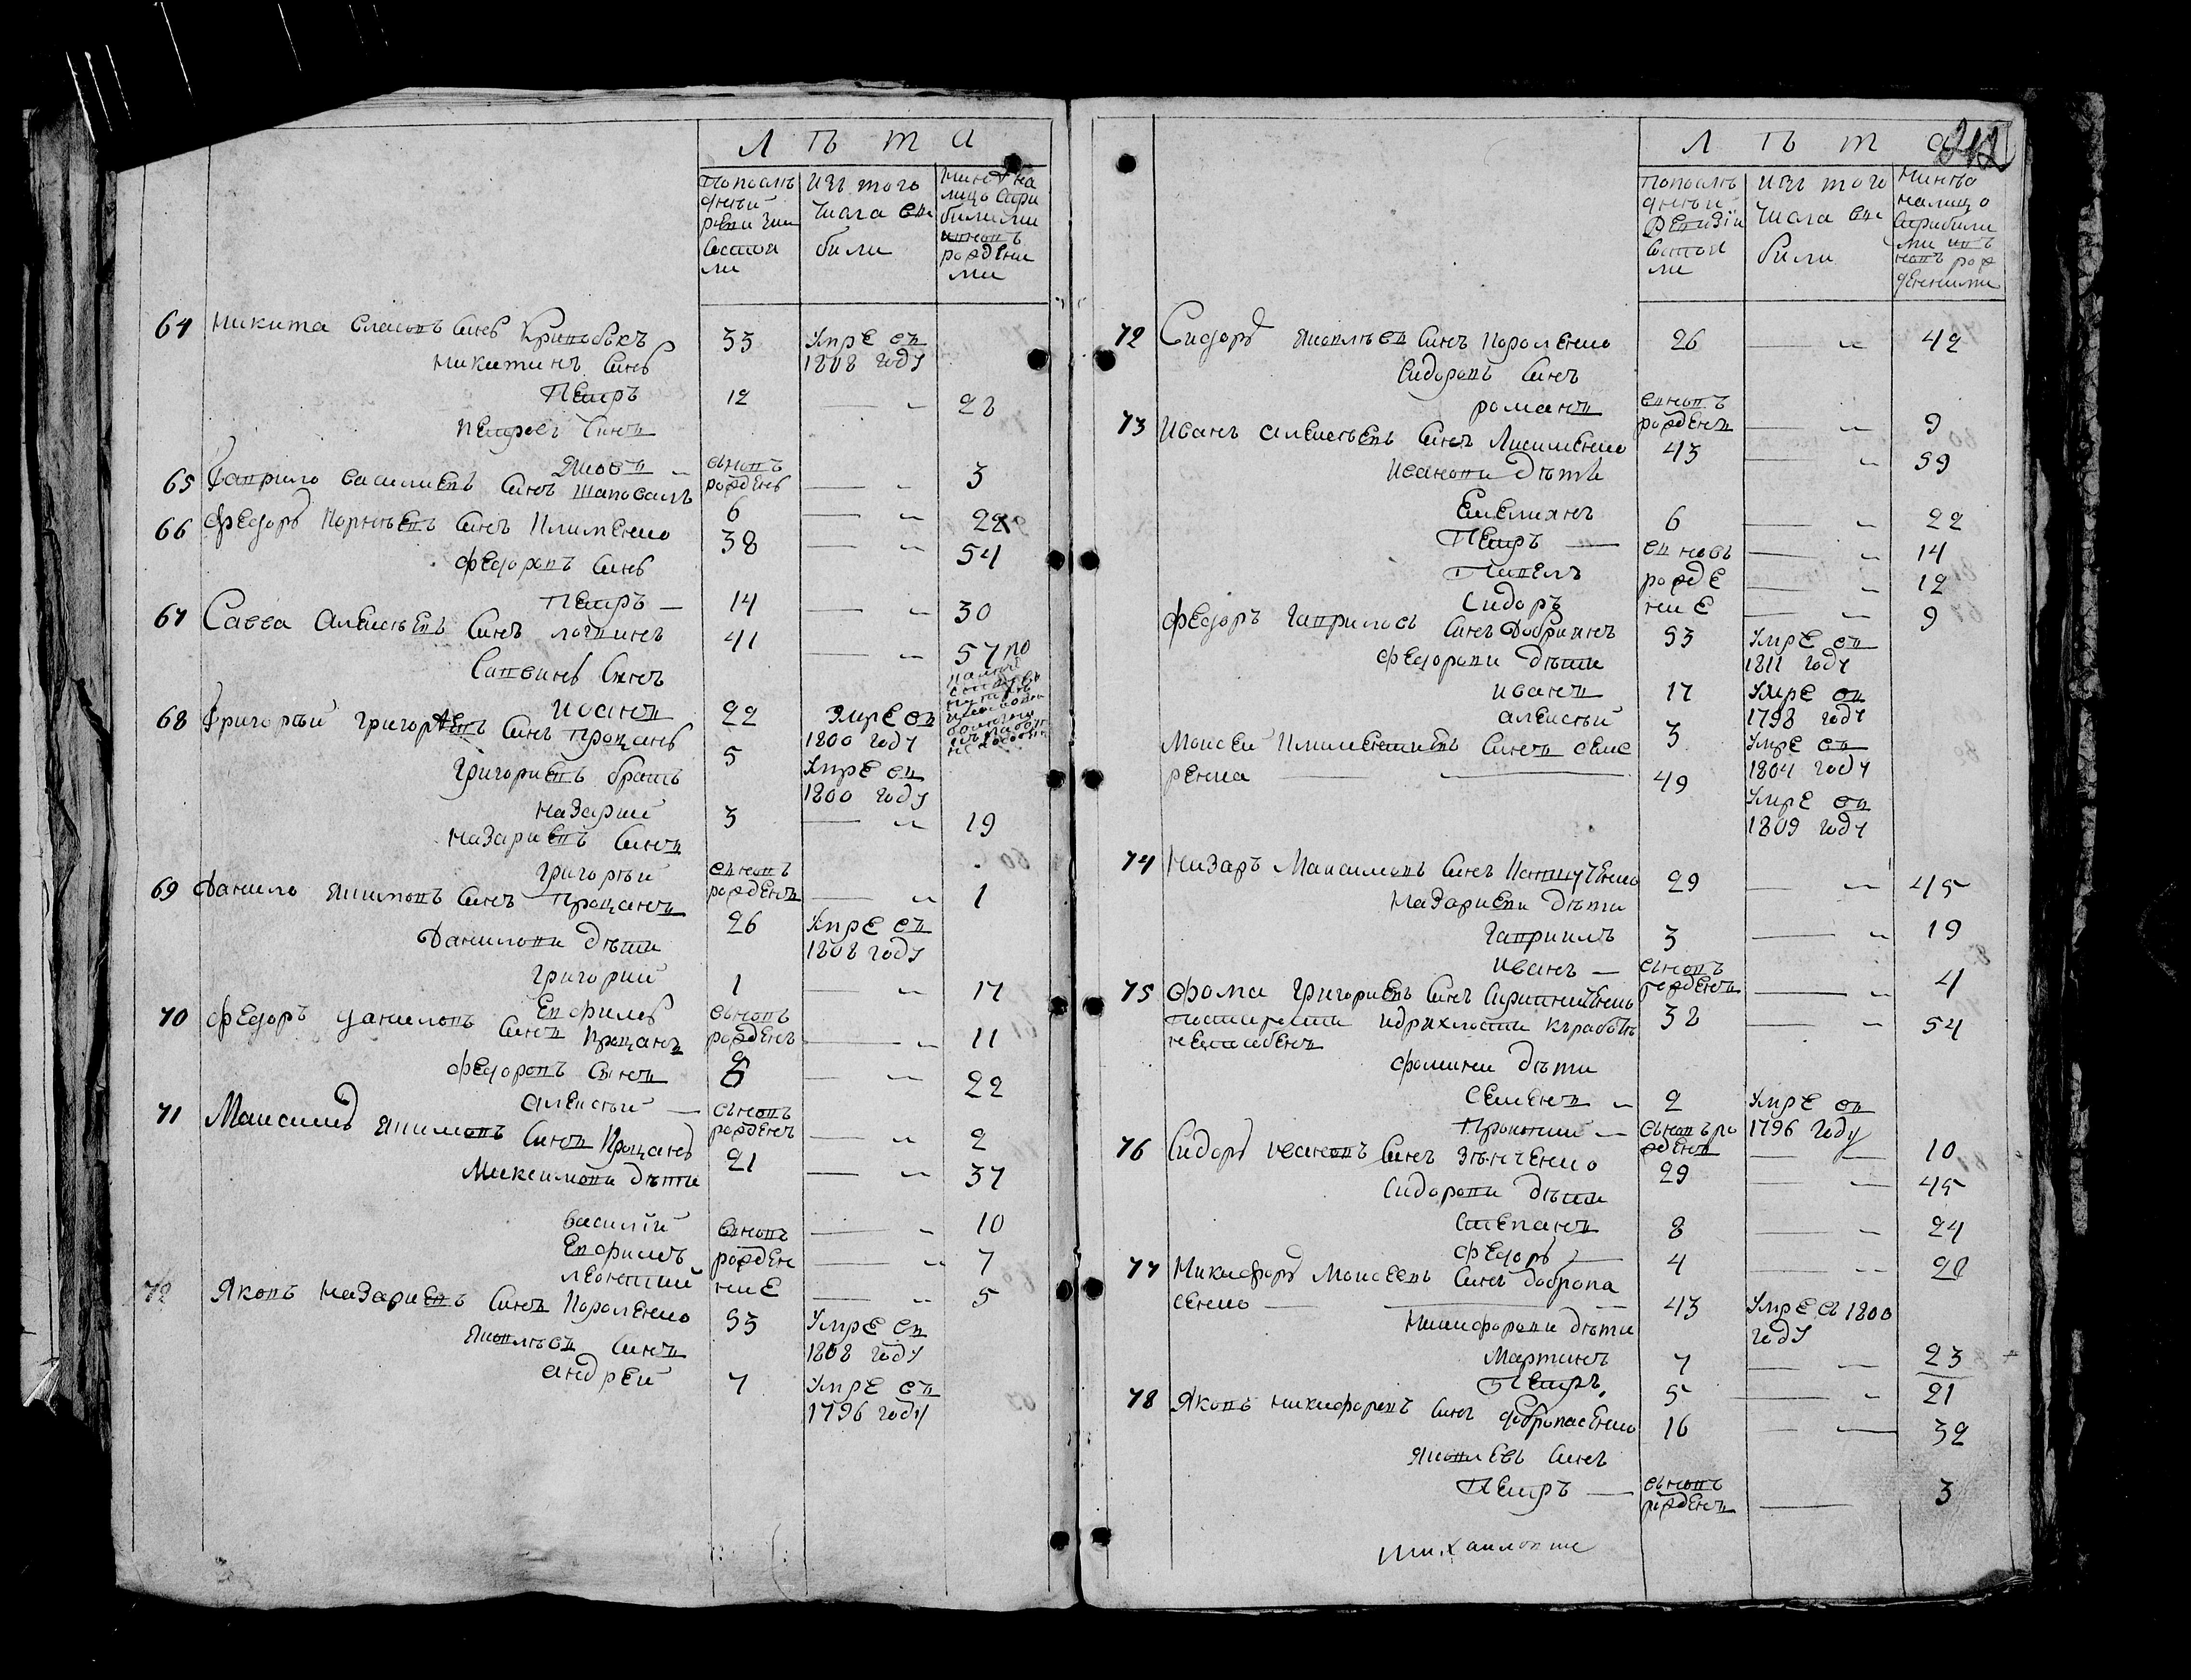 Лѣта
Попослѣдней ревизии состояли
изъ того числа выбыли
ныне на лицо с прибылыми и вновь рожденными
64 Никита Власовъ сынъ 33 Умре въ 1808 году
Никитинъ сынъ
Петръ 12 — 28
Петровъ сынъ
Яковъ вновь рожденъ — 3
65 Гаврило Василиевъ сынъ Шаповалъ 6 — 22
66 Федоръ Корнѣевъ сынъ Клименко 38 — 54
Федоровъ сынъ
Петръ — 14 — 30
67 Савва Алексѣевъ сынъ Логвинъ 41 — 57
Саввинъ сынъ
Иванъ 22 Умре въ 1800 году
68 Григорѣй Григориевъ сынъ Процанъ 5 Умре въ 1800 году
Григориевъ братъ
Назарий 3 — 19
Назариевъ сынъ
Григорѣй вновь рожденъ — 1
69 Данило Якимовъ сынъ Процанъ 26 Умре въ 1808 году
Данилови дѣти
Григорий 1 — 17
Евфимъ вновь рожденъ — 11
70 Федоръ Даниловъ сынъ Процанъ 6 — 22
Федоровъ сынъ
Алексѣй — вновь рожденъ — 2
71 Максимъ Якимовъ сынъ Процанъ 21 — 37
Максимови дѣти
Василий вновь — 10
Евфимъ рожден — 7
Леонтий ние — 5
72 Яковъ Назариевъ сынъ Короленко 53 Умре въ 1808 году
Яковлѣвъ сынъ
Андрей 7 Умре въ 1796 году
212
Лѣта
Попослѣдней ревизии состояли
изъ того числа выбыли
ныне налицо с прибылыми и вновь рожденными
72 Сидоръ Яковлѣвъ сынъ Короленко 26 — 42
Сидоровъ сынъ
Романъ вновь рожденъ — 9
73 Иванъ Алексѣевъ сынъ 43 — 59
Иванови дѣти
Емелианъ 6 — 22
Петръ — вновь — 14
Павелъ рожде — 12
Сидоръ ние — 9
Федоръ Гавриловъ сынъ Добриянъ 53 Умре въ 1811 году
Федорови дѣти
Иванъ 17 Умре въ 1798 году
Алексѣй 3 Умре въ 1804 году
Моисей Климентиевъ сынъ Семе
ренка — 49 Умре въ 1809 году
74 Назаръ Максимовъ сынъ 29 — 45
Назариеви дѣти
Гавриилъ 3 — 19
Иванъ — вновь рожденъ — 4
75 Фома Григориевъ сынъ 38 — 54
Постарости и дряхлости къ работѣ
неспособенъ
Фомини дѣти
Семенъ 2 Умре въ 1796 году
Прокопий — вновь рожденъ — 10
76 Сидоръ Ивановъ сынъ Зѣнченко 29 — 45
Сидорови дѣти
Степанъ 8 — 24
Федоръ — 4 — 20
77 Никифоръ Моисеевъ сынъ Доброва
сенко — 43 Умре въ 1800 году
Никифорови дѣти
Мартинъ 7 — 23
Петръ 5 — 21
78 Яковъ Никифоровъ сынъ Добровасенко 16 — 32
Яковлевъ сынъ
Петръ — вновь рожденъ — 3